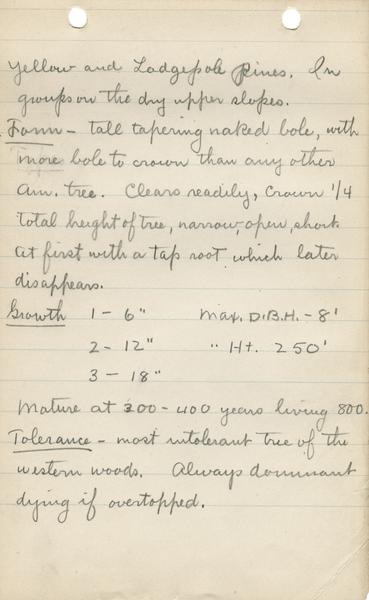 Yellow and Lodgepole Pines. In
groups on the dry upper slopes.
Form - tall tapering naked bole, with
more bole to crown than any other
Am. tree. Clears readily, Crown 1/4
total height of tree, narrow, open, short.
At first with a tap root which later
disappears.
Growth 1 - 6" Max. D.B.H. - 8'
2 - 12" " Ht. 250'
3 - 18"
Mature at 300 - 400 years living 800.
Tolerance - most intolerant tree of the
western woods. Always dominant
dying if overtopped.